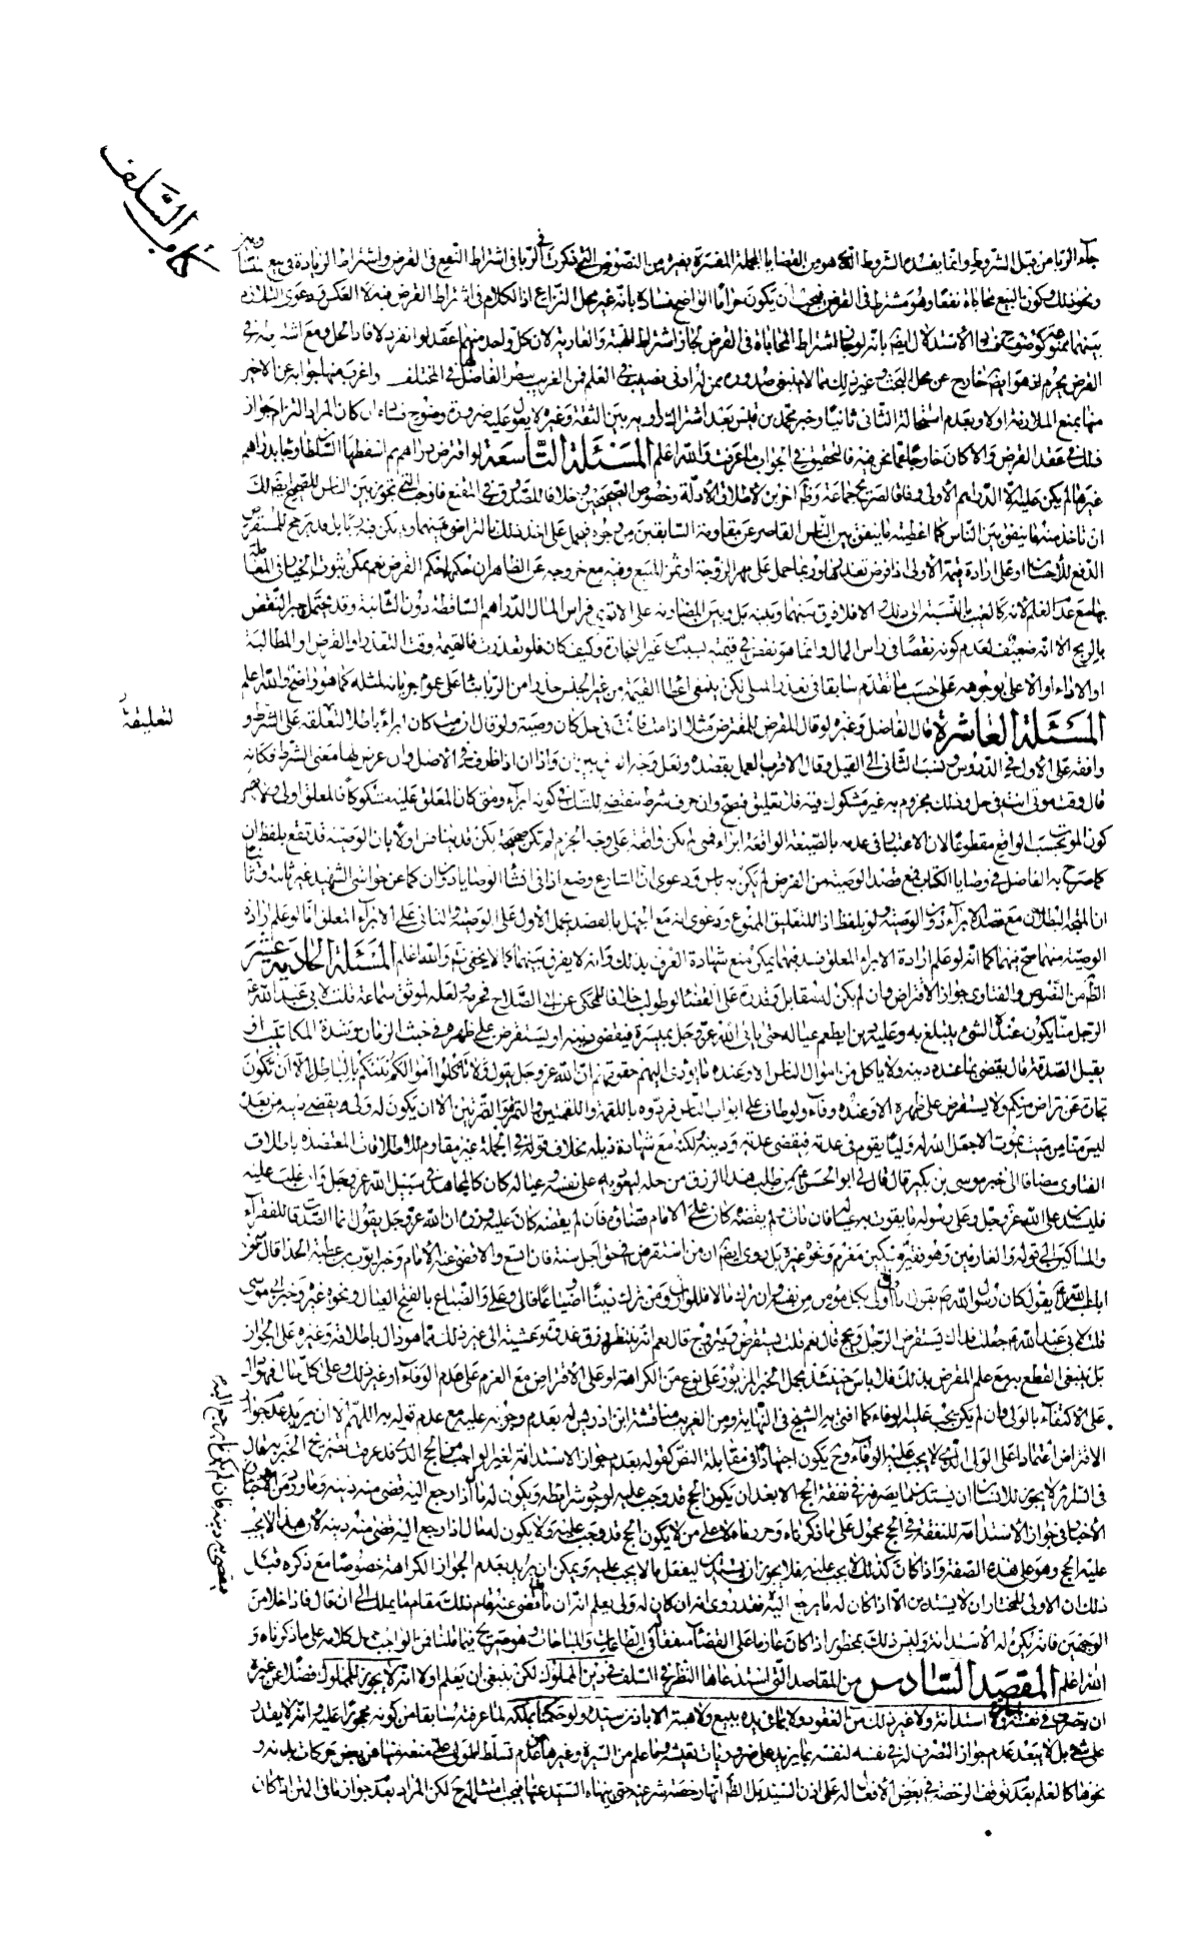 كتاب السلف
جاء الربا من قبل الشروط وانما يفسده الشروط الذي هو من القضايا المجملة المفسرة بغيره من النصوص التي ذكرت في الربا في اشتراط النفع في القرض واشتراط الزيادة في بيع
ونحو ذلك وكون البيع محاباة نفعا وهو مشترط في القرض فيجب ان يكون حراما الواضح فساده بانه غير محل النزاع اذ الكلام في اشتراط القرض فيه لا العكس ودعوى التلازم
بينهما ممنوعة كوضوح الاستدلال ايضا بانه لو جاز اشتراط المحاباة في القرض لجاز اشتراط الهبة والعارية لان كل واحد منهم عقد لو انفرد لافاد الحل ومع اشتراطه في
القرض يحرم اذ هو ايضا خارج عن محل البحث وغير ذلك مما لا ينبغي صدوره ممن له ادنى نصيب في العلم فمن الغريب سطر الفاضل لها في المختلف واغرب منها جوابه عن الاخير
منها بمنع الملازمة اولا وبعدم استحالة الثاني ثانيا وخبر محمد بن قيس بعد اشتراك بين الثقة وغيره لا يعول عليه ضرورة وضوح فساده ان كان المراد التزام جواز
ذلك في عقد القرض والا كان خارجا عما نحن فيه فالتحقيق في الجواب ما عرفت والله اعلم المسئلة التاسعة لو اقترض دراهم ثم اسقطها السلطان وجاء بدراهم
غيرها لم يكن عليه الا الدراهم الاولى وفاقا لصريح جماعة وظاهر اخرين لاطلاق الادلة وخصوص الصحيحين خلافا للصدوق في المقنع فاوجب التي تجوز بين الناس للصحيح ايضا لك
ان تاخذ منه ما ينفق بين الناس كما اعطيته ما ينفق بين الناس القاصر عن مقاومة السابقين من وجوه فيحمل على اخذ ذلك بالتراضي بينهما
الدفع للاحسان او على ارادة قيمة الاولى اذا فرض تعذرها وربما حمل على مهر الزوجة او ثمن المبيع وفيه مع خروجه عن الظاهر ان حكمها حكم القرض نعم يمكن ثبوت الخيار في المعاملة
بها مع عدم العلم لانه كالعيب بالنسبة الى ذلك والا فلا فرق بينهما وبينه بل وبين المضاربة على الاقوى فراس المال الدراهم الساقطة دون الثانية وقد يحتمل جبر النقص
بالربح الا انه ضعيف لعدم كونه نقصا في راس المال وانما هو نقص في قيمته لسبب غير التجارة وكيف كان فلو تعذرت فالقيمة وقت التعذر او القرض والمطالبة
او الاداء او الاعلى بوجوهه على حسب ما تقدم سابقا في تعذر المثلي لكن ينبغي اعطاء القيمة من غير الجنس حذرا من الربا بناء على عموم جريانه لمثله كما هو واضح والله اعلم
المسئلة العاشرة قال الفاضل وغيره لو قال المقرض للمقترض مثلا اذا مت فانت في حل كان وصية ولو قال ان مت كان ابراء باطلا لتعلقه على الشرط و
لتعليقه
وافقه على الاول في الدروس ونسب الثاني الى القيل وقال الاقرب العمل بقصده ولعل وجه الفرق بين ان واذا ان اذا ظرف في الاصل وان عرض لها معنى الشرط فكانه
قال وقت موتي انت في حل وذلك مجزوم به غير مشكوك فيه فلا تعليق فيصح وان حرف شرط تقتضيه للشك في كونه ابراء ومتى كان المعلق عليه مشكوكا كان المعلق اولى ولا يضر
كون الموت بحسب الواقع مقطوعا لان الاعتبار في عدمه بالصيغة الواقعة ابراء فمتى لم تكن واقعة على وجه الجزم لم تكن صحيحة لكن قد يناقش اولا بان الوصية قد تقع بلفظ ان
كما صرح به الفاضل في وصايا الكتاب فمع قصد الوصية من القرض لم يكن به باس ودعوى ان الشارع وضع اذا في انشاء الوصايا دون ان كما عن حواشي الشهيد غير ثابتة وثانيا
ان المتجه البطلان مع قصد الابراء دون الوصية ولو بلفظ اذا للتعليق الممنوع ودعوى انه مع الجهل بالقصد يحمل الاول على الوصية والثاني على الابراء المعلق اما لو علم ارادة
الوصية منهما صح فيهما كما انه لو علم ارادة الابراء المعلق فسد فيهما يمكن منع شهادة العرف بذلك وانه لا يفرق بينهما كما لا يخفى والله اعلم المسئلة الحادية عشر
الظاهر من النصوص والفتاوى جواز الاقتراض وان لم يكن له مقابل وقدرة على القضاء لو طولب خلافا للمحكي عن ابي الصلاح فحرمه ولعله لموثق سماعة قلت لابي عبد الله ع
الرجل منا يكون عنده الشيء يتبلغ به وعليه دين ايطعم عياله حتى ياتي الله عز وجل بميسرة فيقضي دينه او يستقرض على ظهره في خبث الزمان وشدة المكاسب او
يقبل الصدقة قال يقضي بما عنده دينه ولا ياكل من اموال الناس الا وعنده ما يؤدي اليهم حقوقهم ان الله عز وجل يقول ولا تاكلوا اموالكم بينكم بالباطل الا ان تكون
تجارة عن تراض منكم ولا يستقرض على ظهره الا وعنده وفاء ولو طاف على ابواب الناس فردوه باللقمة واللقمتين والتمرة والتمرتين الا ان يكون له ولي يقضي دينه من بعده
ليس منا من ميت يموت الا جعل الله له وليا يقوم في عدته فيقضي عدته ودينه لكنه مع شهادة ذيله بخلاف قوله في الجملة غير مقاوم للاطلاقات المعتضدة باطلاق
الفتاوى مضافا الى خبر موسى بن بكير قال قال لي ابو الحسن ع من طلب هذا الرزق من حله ليعود به على نفسه وعياله كان كالمجاهد في سبيل الله عز وجل فان غلب عليه
فليستدن على الله عز وجل وعلى رسوله ما يقوت به عياله فان مات ولم يقضه كان على الامام قضاؤه فان لم يقضه كان عليه وزره ان الله عز وجل يقول انما الصدقات للفقراء
والمساكين الى قوله والغارمين وهو فقير مسكين مغرم ونحوه غيره بل روى ايضا ان من استقرض في حق اجل سنة فان اتسع والا قضى عنه الامام وخبر ايوب بن عطية الحذاء قال سمعت
ابا عبد الله ع يقول كان رسول الله ص يقول انا اولى بكل مؤمن من نفسه ومن ترك مالا فللوارث ومن ترك دينا او ضياعا فالي وعلي والضياع بالفتح العيال ونحوه غيره وخبر ابي موسى
قلت لابي عبد الله ع جعلت فداك يستقرض الرجل ويحج قال نعم قلت يستقرض ويتزوج قال نعم انه ينتظر رزق الله غدوة وعشية الى غير ذلك مما هو دال باطلاقه وغيره على الجواز
بل ينبغي القطع به مع علم المقرض بذلك فلا باس حينئذ بحمل الخبر المزبور على نوع من الكراهة او على الاقتراض مع العزم على عدم الوفاء او غير ذلك وعلى كل حال فهو دال
على الاكتفاء بالولي وان لم يكن يجب عليه الوفاء كما افتى به الشيخ في النهاية ومن الغريب مناقشة ابن ادريس له بعدم وجوبه عليه مع عدم قوله به اللهم الا ان يريد عدم جواز
الاقتراض اعتمادا على الولي الذي لا يجب عليه الوفاء وح يكون اجتهادا في مقابلة النص كقوله بعدم جواز الاستدانة لغير الواجب من الحج الذي قد عرفت تصريح الخبر به قال
في السرائر لا يجوز للانسان ان يستدين ما يصرفه في نفقة الحج الا بعد ان يكون الحج قد وجب عليه لوجود شرائطه ويكون له ما اذا رجع اليه قضى منه دينه وما ورد من
الاخبار في جواز الاستدانة للنفقة في الحج محمول على ما ذكرناه لا على من لا يكون الحج قد وجب عليه ولا يكون له مال اذا رجع اليه قضى منه دينه لان هذا لا يجب
عليه الحج وهو على هذه الصفة واذا كان كذلك لا يجب عليه فلا يجوز ان يستدين ليفعل ما لا يجب عليه ويمكن ان يريد بعدم الجواز الكراهة خصوصا مع ذكره قبل
ذلك ان الاولى للمختار ان لا يستدين الا اذا كان له ما يرجع اليه فقد روى انه ان كان له ولي يعلم انه ان مات قضى عنه قام ذلك مقام ما يملك الى ان قال فاذا خلا من
الوجهين فانه يكره له الاستدانة وليس ذلك بمحظور اذا كان عازما على القضاء منفقا في الطاعات والمباحات وهو صريح فيما قلناه بل كلامه على ما ذكرناه و
الله اعلم المقصد السادس من المقاصد التي استدعاها النظر في السلف في دين المملوك لكن ينبغي ان يعلم اولا انه لا يجوز للمملوك فضلا عن غيره
ان يتصرف في نفسه باستدانة ولا غير ذلك من العقود ولا بما في يده ببيع ولا هبة الا باذن سيده ولو حكمنا بملكه لما عرفته سابقا من كونه محجورا عليه وانه لا يقدر
على شيء بل لا يبعد عدم جواز التصرف له في نفسه لنفسه بما يزيد على ضروريات تعيشه وما علم من السيرة وغيرها عدم تسلط المولى على منعه منها من بعض حركات يديه و
نحوها كما لعلم بعد توقف الرخصة في بعض الافعال على اذن السيد بل الظاهر انها رخصة شرعية حتى ينهاه السيد عنها فيجب امتثاله ح لكن المراد بعد جواز ما في المتن اذا كان